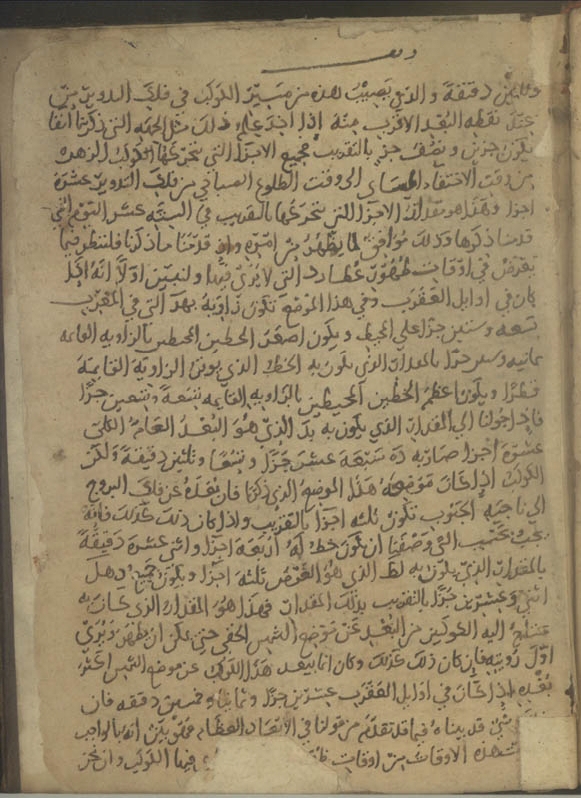 وثلثين دقيقة والذي يصيب هذه من مسير الكوكب في فلك التدوير من
عند نقطه البعد الاقرب منه اذا اخذ علي ذلك مثل الجهه التي ذكرنا انفا
يكون جزين ونصف جز بالتقريب فجميع الاجزا التي يتحركها كوكب الزهره
من وقت الاختفاء المساي الي وقت الطلوع الصباحي من فلك التدوير عشرة
اجزا وهذا هو مقدار الاجزا التي يتحركها بالتقريب في الستة عشر اليوم التي
قدمنا ذكرها وذلك موافق لما يظهر من امره واذ قدمنا ما ذكرنا فلننظر فيما
يعرض في اوقات ظهور عطارد التي لا يرى فيها ولنبين اولا انه اذا
كان في اوايل العقرب وفي هذا الموضع تكون زاوية بهد التي في المغرب
تسعه وستين جزا علي المحيط ويكون اصغر الخطين المحيطين بالزاويه القايمه
ثمانيه جزا بالمقدار الذي يكون به الخط الذي يوتر الزاوية القايمة
قطرا ويكون اعظم الخطين المحيطين بالزاويه القايمه تسعة وتسعين جزا
فاذا حولنا الي المقدار الذي يكون به بد الذي هو البعد العام الكلي
عشرة اجزا صار به ده سبعة عشر جزا وتسعا وثلثين دقيقة ولكن
الكوكب اذا كان موضعه هذا الموضع الذي ذكرنا فان بعده عن فلك البروج
الي ناحيه الجنوب يكون ثلثه اجزا بالتقريب واذا كان ذلك كذلك فانه
يجب بحسب الذي وصفنا ان يكون خط له اربعة اجزا واثني عشرة دقيقة
بالمقدار الذي يكون به لط الذي هو العرض ثلثه اجزا ويكون جميع دهل
اثني وعشرين جزا بالتقريب بذلك المقدار فهذا هو المقدار الذي يحتاج به
اليه الكوكب من البعد عن موضع الشمس الخفي حتى يمكن ان يظهر ويرى
اول رؤيته فان كان ذلك كذلك وكان انما يبعد هذا الكوكب عن موضع الشمس اكثر
بعده اذا كان في اوايل العقرب عشرين جزا وثمانيا وخمسين دقيقه فان
قد بيناه فيما تقدم من قولنا في الابعاد العظام فهو بين انه بالواجب
هذه الاوقات من اوقات فيها الكوكب وان نحن